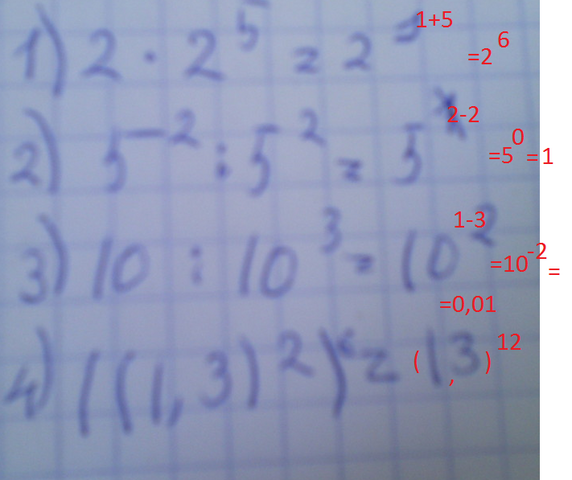 1) 2 · 2^5 = 2^1+5 =2^6
2) 5^-2 : 5^2 = 5^2-2 =5^0 =1
3) 10 : 10^3 = 10^1-3 =10^-2 =
=0,01
4) ((1,3)^2) = (1,3)^12